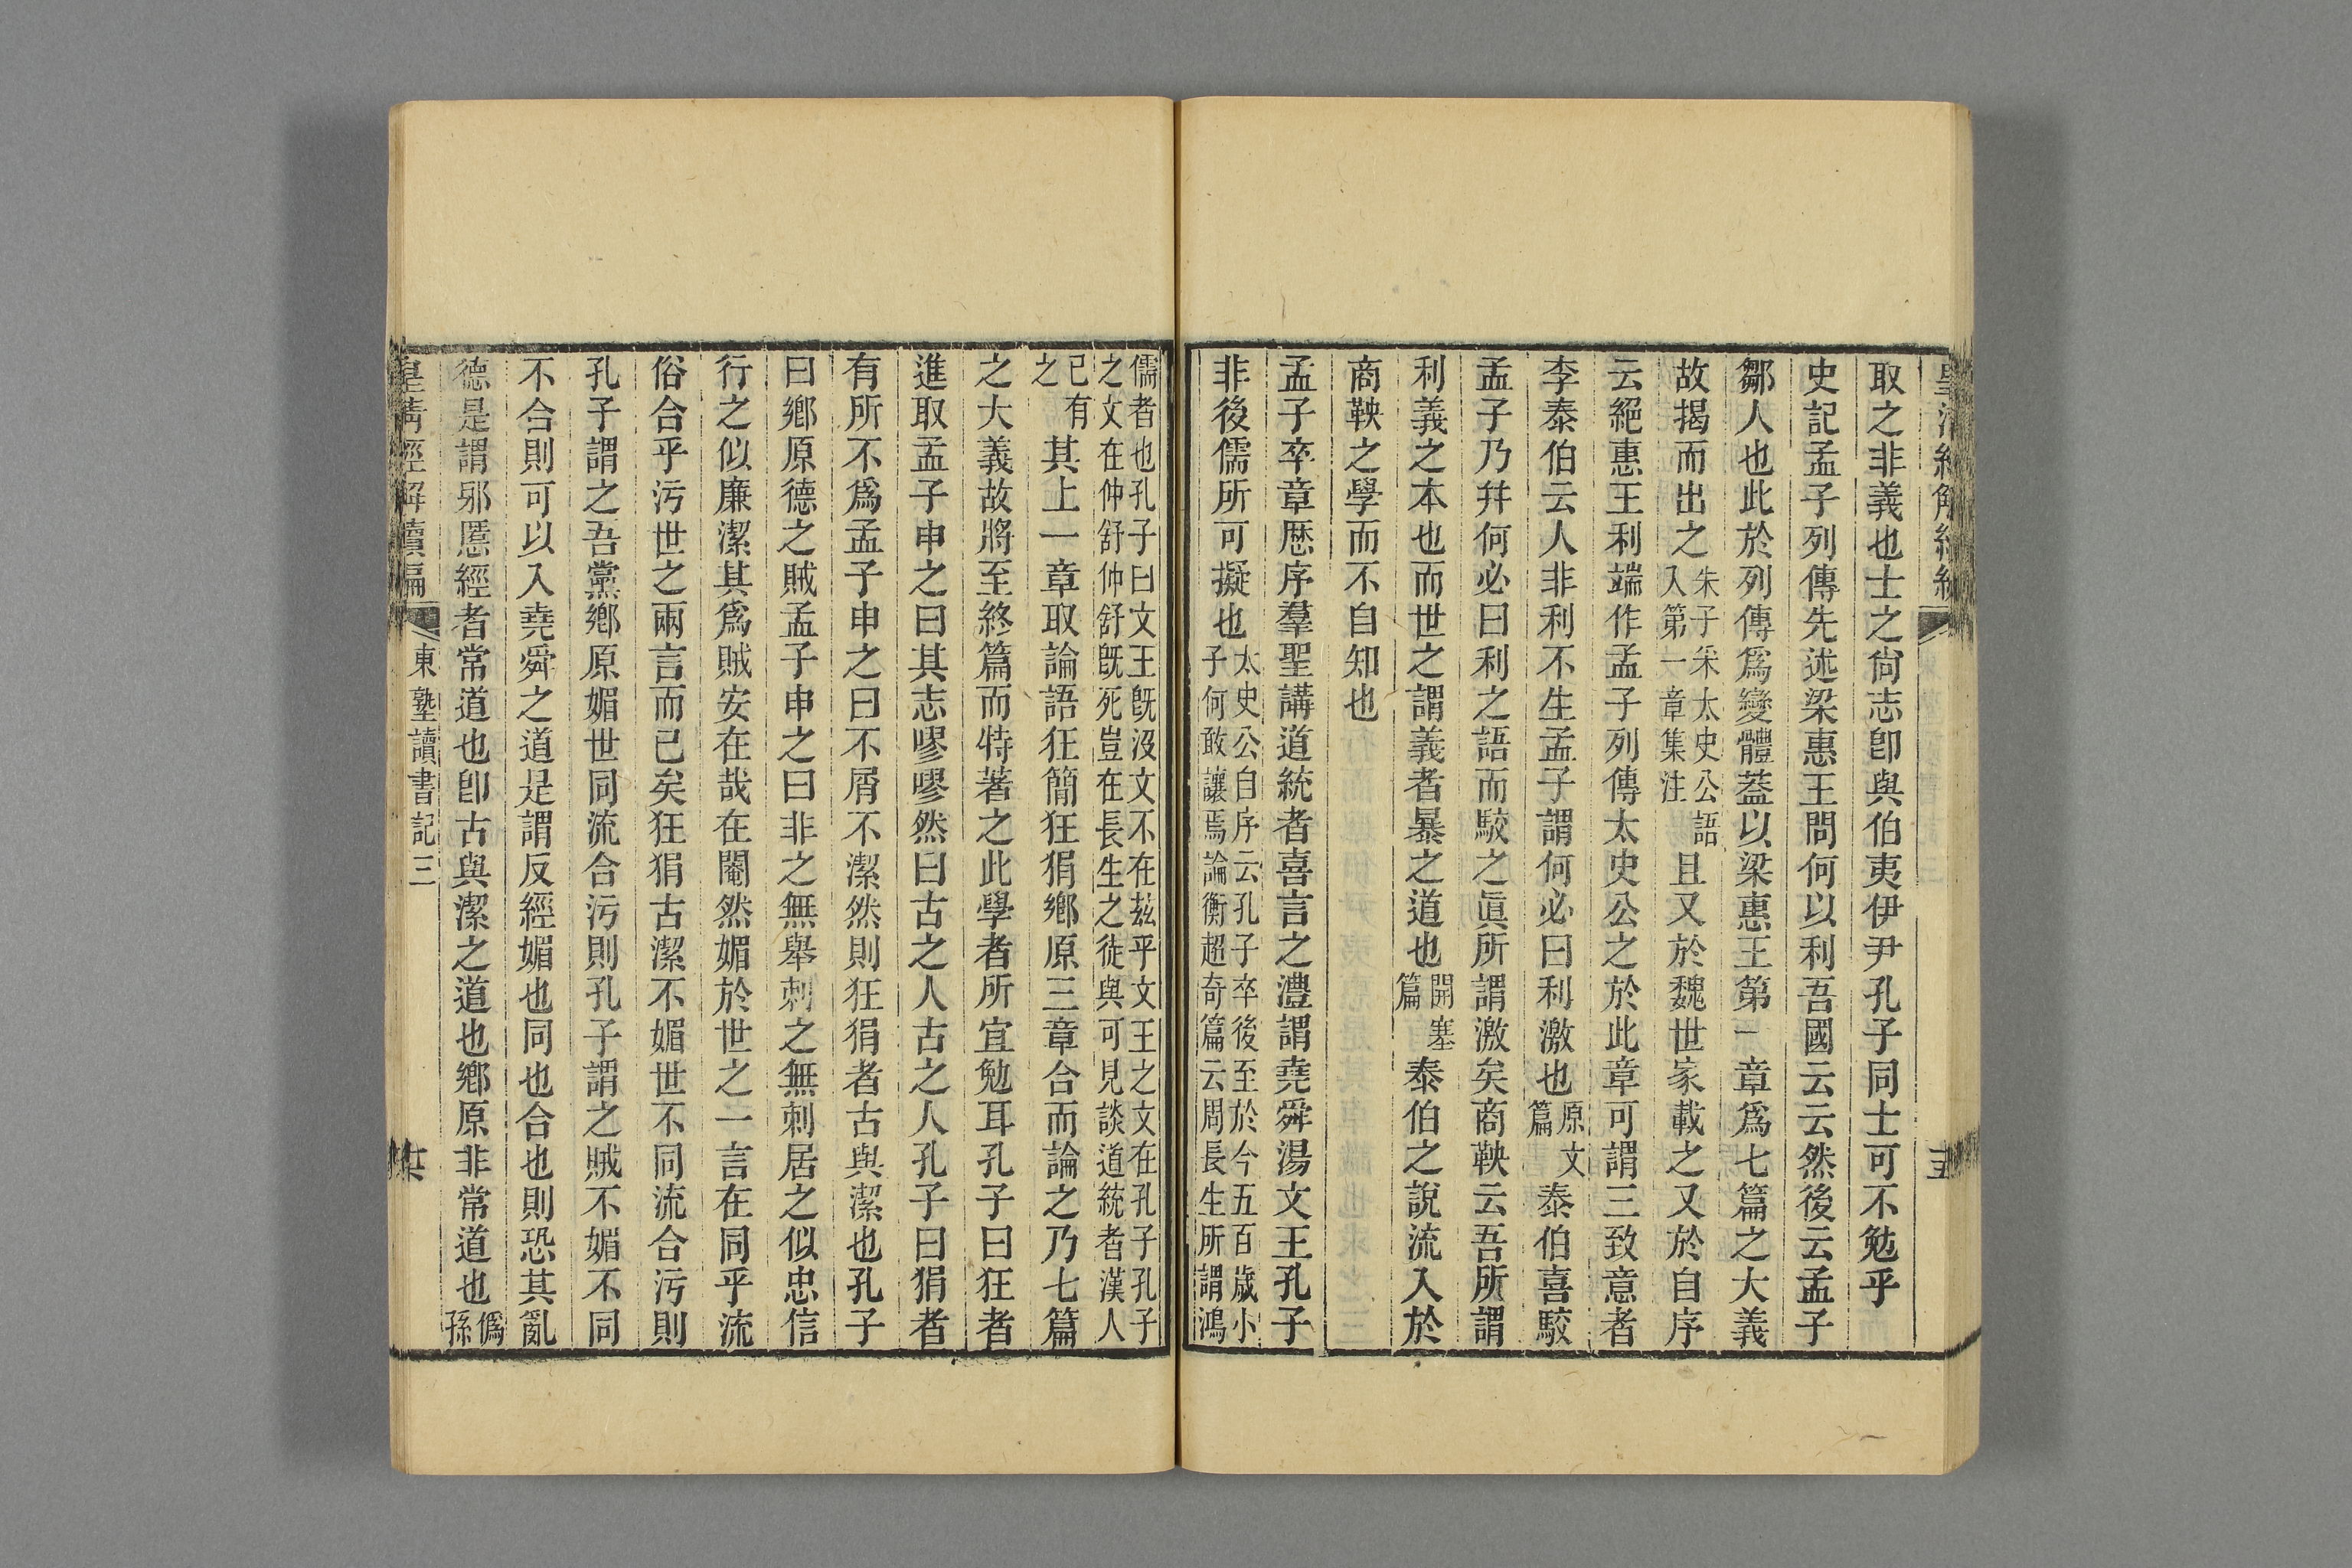 取之非義也士之尙志卽與伯夷伊尹孔子同士可不勉乎
史記孟子列傳先述梁惠王問何以利吾國云云然後云孟子
鄒人也此於列傳爲變體蓋以梁惠王第一章爲七篇之大義
故揭而出之朱子采太史公語入第一章集注且又於魏世家載之又於自序
云絕惠王利端作孟子列傳太史公之於此章可謂三致意者
李泰伯云人非利不生孟子謂何必曰利激也原文篇泰伯喜駮
孟子乃幷何必曰利之語而駮之眞所謂激矣商鞅云吾所謂
利義之本也而世之謂義者暴之道也開塞篇泰伯之說流入於
商鞅之學而不自知也
孟子卒章歷序羣聖講道統者喜言之澧謂堯舜湯文王孔子
非後儒所可擬也太史公自序云孔子卒後至於今五百歲小子何敢讓焉論衡超奇篇云周長生所謂鴻
儒者也孔子曰文王旣沒文不在茲乎文王之文在孔子孔子之文在仲舒仲舒旣死豈在長生之徒與可見談道統者漢人
已有之其上一章取論語狂簡狂狷鄉原三章合而論之乃七篇
之大義故將至終篇而特著之此學者所宜勉耳孔子曰狂者
進取孟子申之曰其志嘐嘐然曰古之人古之人孔子曰狷者
有所不爲孟子申之曰不屑不潔然則狂狷者古與潔也孔子
曰鄉原德之賊孟子申之曰非之無舉刺之無刺居之似忠信
行之似廉潔其爲賊安在哉在閹然媚於世之一言在同乎流
俗合乎污世之兩言而已矣狂狷古潔不媚世不同流合污則
孔子謂之吾黨鄉原媚世同流合污則孔子謂之賊不媚不同
不合則可以入堯舜之道是謂反經媚也同也合也則恐其亂
德是謂邪慝經者常道也卽古與潔之道也鄉原非常道也僞孫
皇淸經解續編 東塾讀書記三